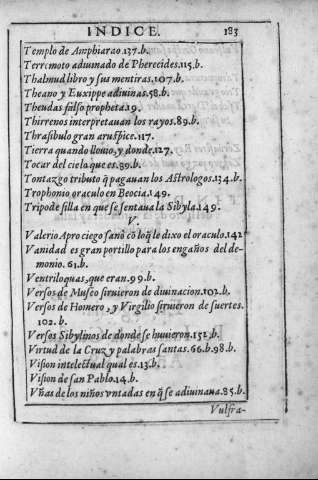 INDICE. 183
Templo de Amphiarao.137.b.
Terremoto adiuinado de Pherecides.115.b.
Thalmud libro y sus mentiras.107.b.
Theano y Euxippe adiuinas.58.b.
Theudas falso propheta.19.
Thirrenos interpretauan los rayos.89.b.
Thrasibulo gran aruspice.117.
Tierra quando llouio, y donde.127.
Tocar del cielo que es.89.b.
Tontazgo tributo q̃ pagauan los Astrologos.134.b.
Trophonio oraculo en Beocia.149.
Tripode silla en que se sentaua la Sibyla.149.
V.
Valerio Apro ciego sanò cõ lo q̃ le dixo el oraculo.142
Vanidad es gran portillo para los engaños del de-
monio. 61.b.
Ventriloquas, que eran.99.b.
Versos de Museo siruieron de diuinacion.102.b.
Versos de Homero, y Virgilio siruieron de suertes.
102.b.
Versos Sibylinos de donde se huuieron.151.b.
Virtud de la Cruz y palabras santas.66.b.98.b.
Vision intelectual qual es.13.b.
Vision de san Pablo.14.b.
Vñas de los niños vntadas en q̃ se adiuinaua.85.b.
Vulfra-